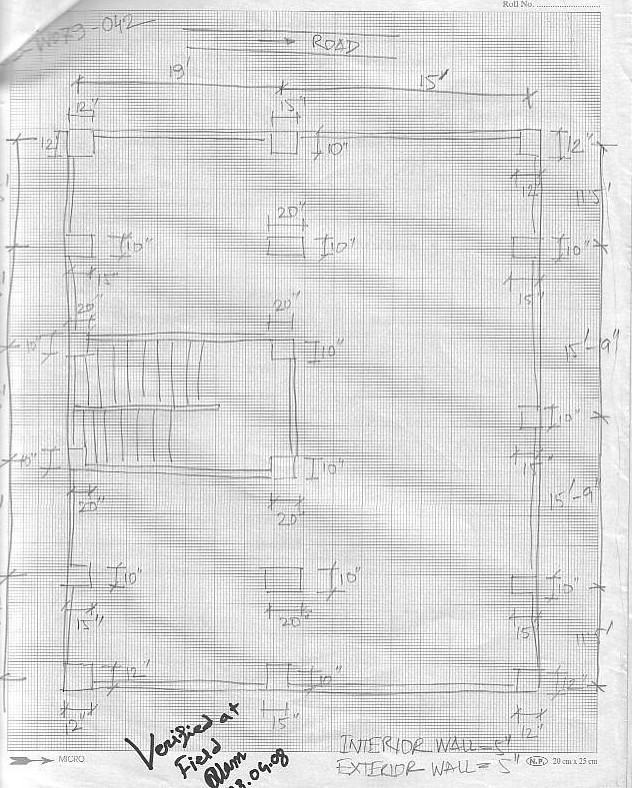 Roll No.
W079-042
ROAD
19' 15'
12" 15"
12" 10" 12"
12" 11'5"
20"
10" 10" 10"
15" 15"
20" 20"
10" 10" 15'-9"
10"
10" 10" 15"
20" 20" 15'-9"
10" 10" 10"
15" 20" 15"
12" 10" 12"
12" 15" 12"
Verified at
Field
Alam
04.08
INTERIOR WALL = 5"
EXTERIOR WALL = 5"
MICRO N.P. 20 cm x 25 cm